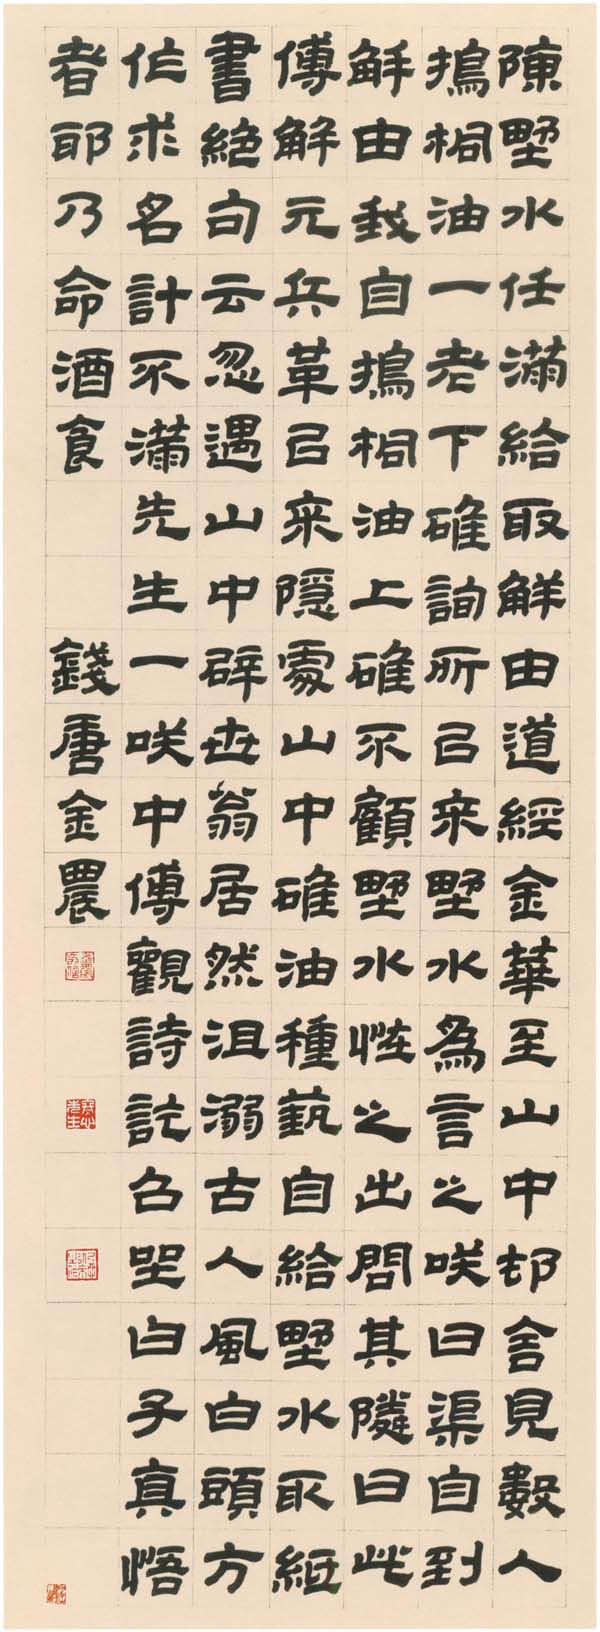 陳野水任滿給取解由道經金華至山中邨舍見數人
搗桐油一老下碓詢所已來野水為言之咲曰渠自到
解由我自搗桐油上碓不顧野水恠之出問其隣曰此
傅解元兵革已來隱處山中碓油種蓺自給野水取紙
書絕句云忽遇山中辟世翁居然沮溺古人風白頭方
作求名計不滿先生一咲中傅觀詩訖召坐白子真悟
者耶乃命酒食 錢唐金農
冬心先生